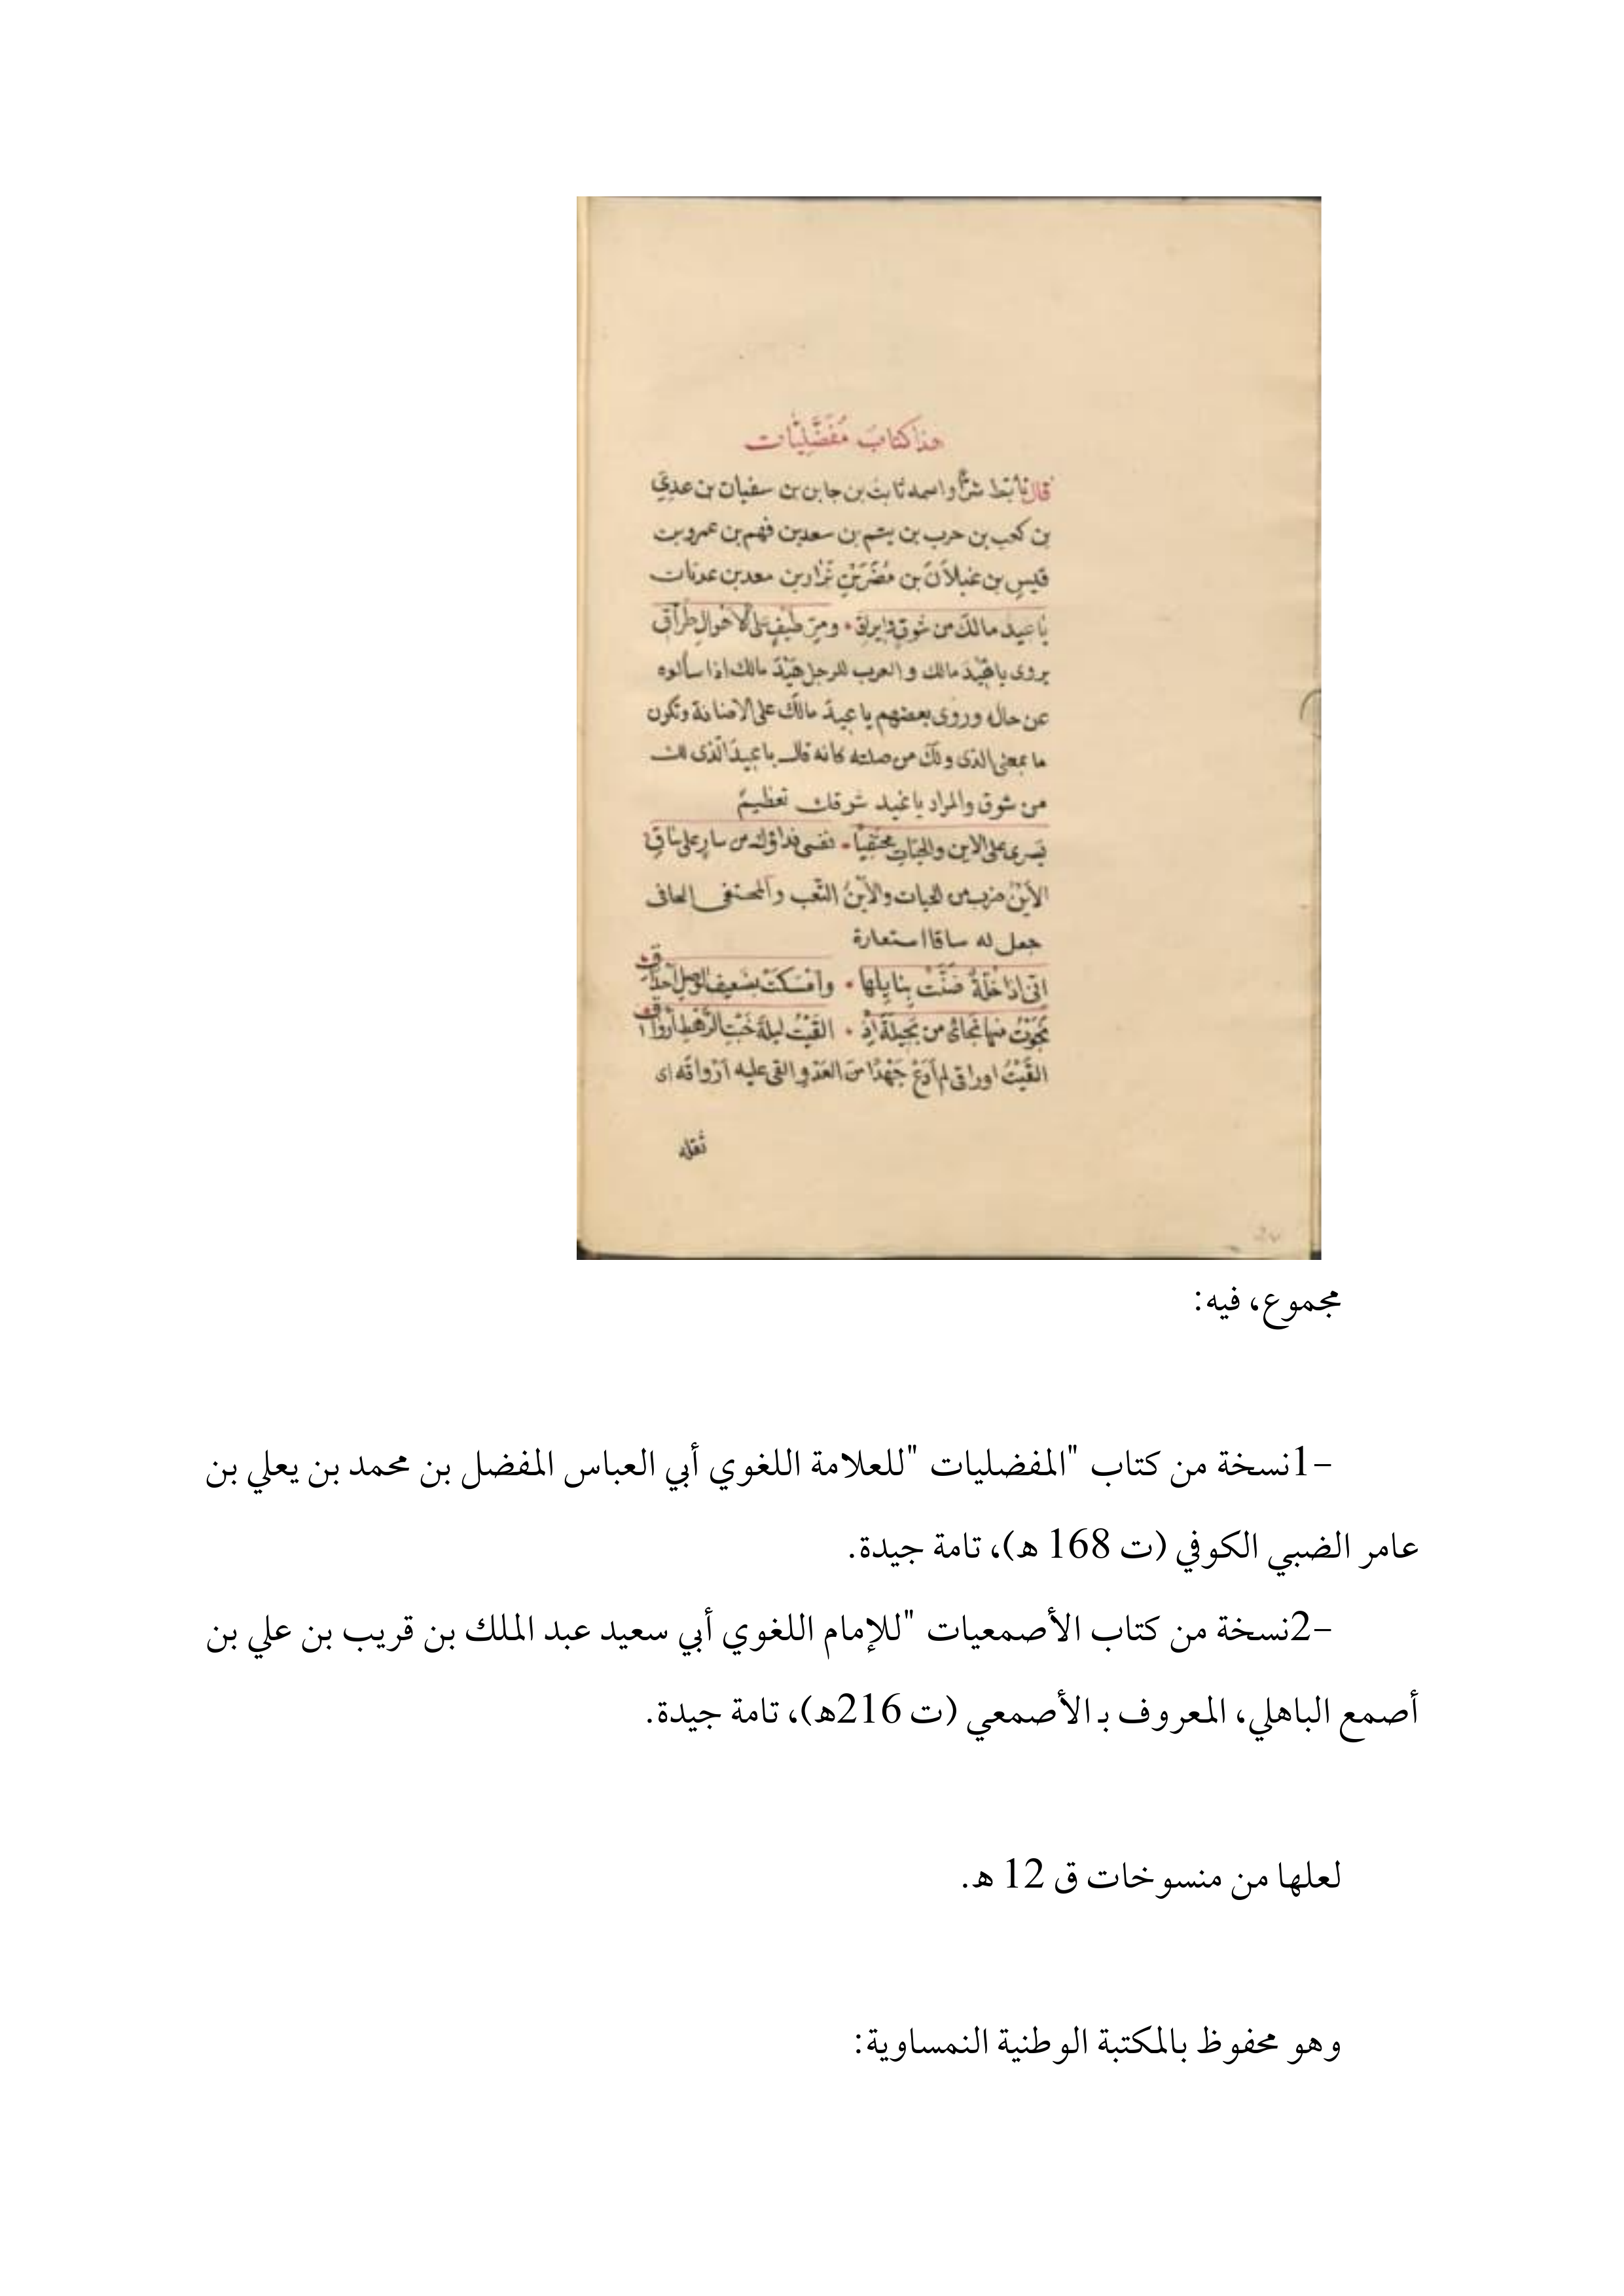 هذا كتاب مُفَضَّلِيَّات
قال تأبّط شرًّا واسمه ثابت بن جابر بن سفيان بن عدي
بن كعب بن حرب بن يشم بن سعد بن فهم بن عمرو بن
قيس بن غيلان بن مُضَر بن نزار بن معد بن عدنان
يا عيد مالك من شوق وايراق • ومرّ طيف على الاحوال طرّاق
يروى يا هَيْدَ مالك والعرب للرجل هَيْدَ مالك اذا سألوه
عن حاله وروى بعضهم يا عيد مالك على الاضافة وتكون
ما بمعنى الذى ولك من صلته كانه قال يا عيد الّذى لك
من شوق والمراد يا عيد شوقك تعظيم
يسرى على الاين والحيّات محتفيًا • نفسى فداؤك من سار على ساق
الأيْن ضرب من الحيات والأينُ التّعب والمحتفى الحافى
جعل له ساقا استعارة
انّى اذا خُلّة ضنّت بنايلها • وامسكت بضعيف الوصل احذاق
نجوت منها نجائى من بجيلة اذ • القيتُ ليلة خبت الرّهط أرواقى
القيتُ اوراقى لم أدع جهدًا من العدو والقى عليه أرواقه اى
ثقله
مجموع، فيه:
-1نسخة من كتاب "المفضليات "للعلامة اللغوي أبي العباس المفضل بن محمد بن يعلي بن
عامر الضبي الكوفي (ت 168 ه)، تامة جيدة.
-2نسخة من كتاب الأصمعيات "للإمام اللغوي أبي سعيد عبد الملك بن قريب بن علي بن
أصمع الباهلي، المعروف بـ الأصمعي (ت 216ه)، تامة جيدة.
لعلها من منسوخات ق 12 ه.
وهو محفوظ بالمكتبة الوطنية النمساوية: